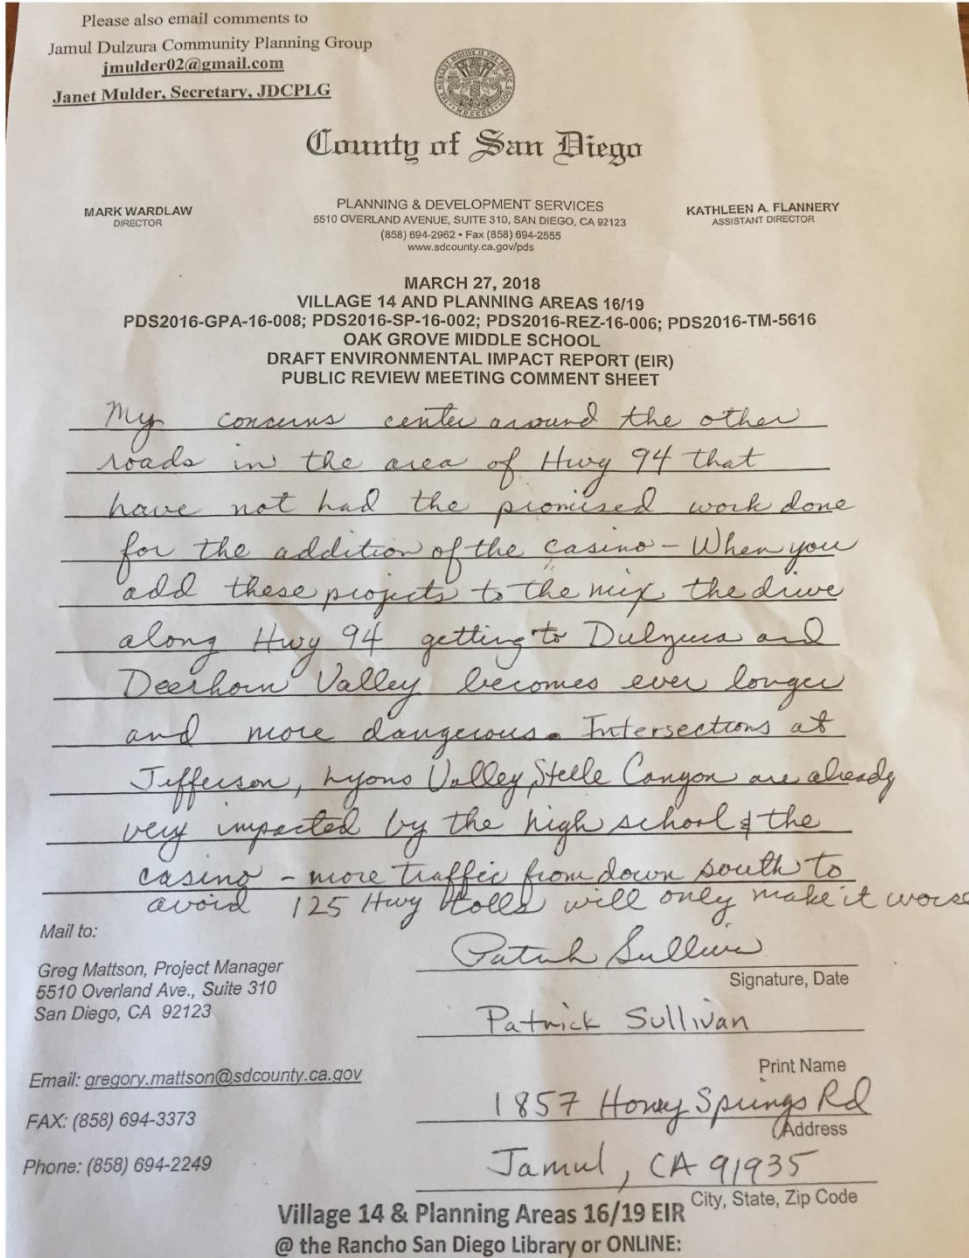 Please also email comments to
Jamul Dulzura Community Planning Group
jmulder02@gmail.com
Janet Mulder, Secretary, JDCPLG
County of San Diego
MARK WARDLAW
DIRECTOR
PLANNING & DEVELOPMENT SERVICES
5510 OVERLAND AVENUE, SUITE 310, SAN DIEGO, CA 92123
(858) 694-2962 • Fax (858) 694-2555
www.sdcounty.ca.gov/pds
KATHLEEN A. FLANNERY
ASSISTANT DIRECTOR
MARCH 27, 2018
VILLAGE 14 AND PLANNING AREAS 16/19
PDS2016-GPA-16-008; PDS2016-SP-16-002; PDS2016-REZ-16-006; PDS2016-TM-5616
OAK GROVE MIDDLE SCHOOL
DRAFT ENVIRONMENTAL IMPACT REPORT (EIR)
PUBLIC REVIEW MEETING COMMENT SHEET
My concerns center around the other
roads in the area of Hwy 94 that
have not had the promised work done
for the addition of the casino - When you
add these projects to the mix the drive
along Hwy 94 getting to Dulzura and
Deerhorn Valley becomes ever longer
and more dangerous. Intersections at
Jefferson, Lyons Valley, Steele Canyon are already
very impacted by the high school & the
casino - more traffic from down south to
avoid 125 Hwy tolls will only make it worse
Mail to:
Greg Mattson, Project Manager
5510 Overland Ave., Suite 310
San Diego, CA 92123
Email: gregory.mattson@sdcounty.ca.gov
FAX: (858) 694-3373
Phone: (858) 694-2249
Patrick Sullivan
Signature, Date
Patrick Sullivan
Print Name
1857 Honey Springs Rd
Address
Jamul, CA 91935
City, State, Zip Code
Village 14 & Planning Areas 16/19 EIR
@ the Rancho San Diego Library or ONLINE: